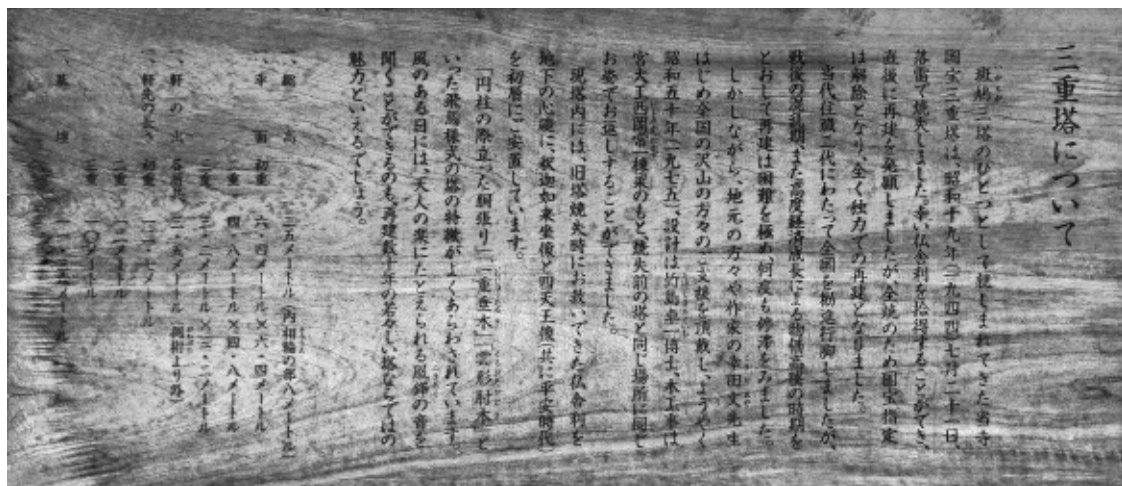 三重塔について
斑鳩三塔のひとつとして親しまれてきた当寺
国宝三重塔は、昭和十九年(一九四四)七月二十一日、
落雷で焼失しました。幸い仏舎利を拾得することができ、
直後に再建を発願しましたが、全焼のため国宝指定
は解除となり、全く独力での再建となりました。
当代住職二代にわたって全国を勧進行脚しましたが、
戦後の混乱期、また高度経済成長による物価高騰の時期を
とおして再建は困難を極め、何度も停滞をみました。
しかしながら、地元の方々や作家の幸田文先生
はじめ全国の沢山の方々のご支援を頂戴し、ようやく
昭和五十年(一九七五)、設計は竹島卓一博士、木工事は
宮大工西岡常一棟梁のもと、焼失前の塔と同じ場所に同じ
お姿でお返しすることができました。
現塔内には、旧塔焼失時にお救いできた仏舎利を
地下の心礎に、釈迦如来坐像と四天王像(共に平安時代)
を初層にご安置しています。
「円柱の際立った胴張り」「二重垂木」「雲形肘木」と
いった飛鳥様式の塔の特徴がよくあらわされています。
風のある日には、天人の楽にたとえられる風鐸の音を
聞くことができるのも再建数十年の若々しい塔ならではの
魅力といえるでしょう。
一、総高 二五メートル(内相輪の部八メートル)
一、平面 初重 六、四メートル×六、四メートル
二重 四、八メートル×四、八メートル
三重 三、二メートル×三、二メートル
一、軒の出 各重共 二、九メートル(側柱より外)
一、軒先の長 初重 一二、七メートル
二重 一一メートル
三重 一〇メートル
一、基壇